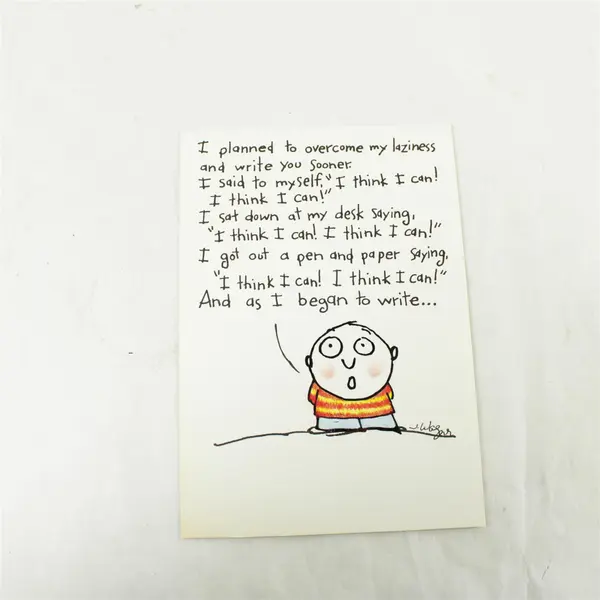 I planned to overcome my laziness
and write you sooner.
I said to myself, "I think I can!
I think I can!"
I sat down at my desk saying,
"I think I can! I think I can!"
I got out a pen and paper saying,
"I think I can! I think I can!"
And as I began to write...